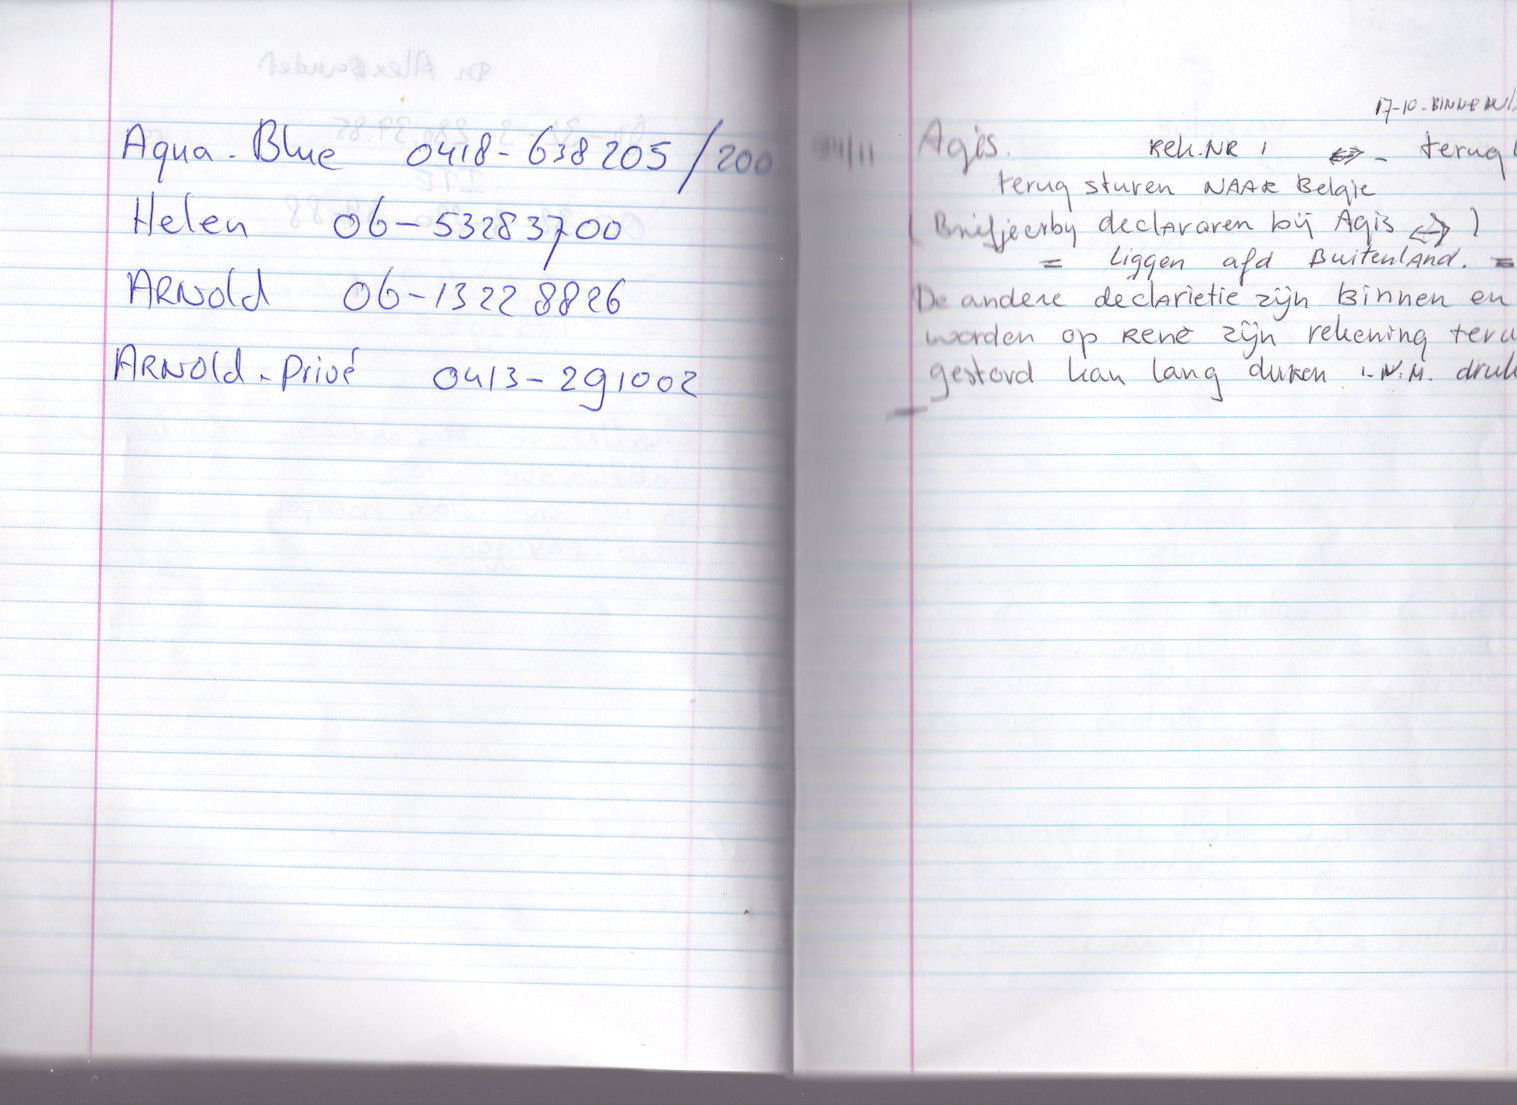 Aqua-Blue 0418-638205/200
Helen 06-53283700
ARNold 06-13228826
ARNold-Privé 0413-291002
17-10-BINNEN
Agis. Rek.NR ! ⇔ - terug
terug sturen NAAR Belgie
( Briefjeerby declararen bij Agis ⇔ )
= liggen afd Buitenland. =
De andere declarietie zijn Binnen en
worden op René zijn rekening teru
gestord kan lang duren i.V.M. druk